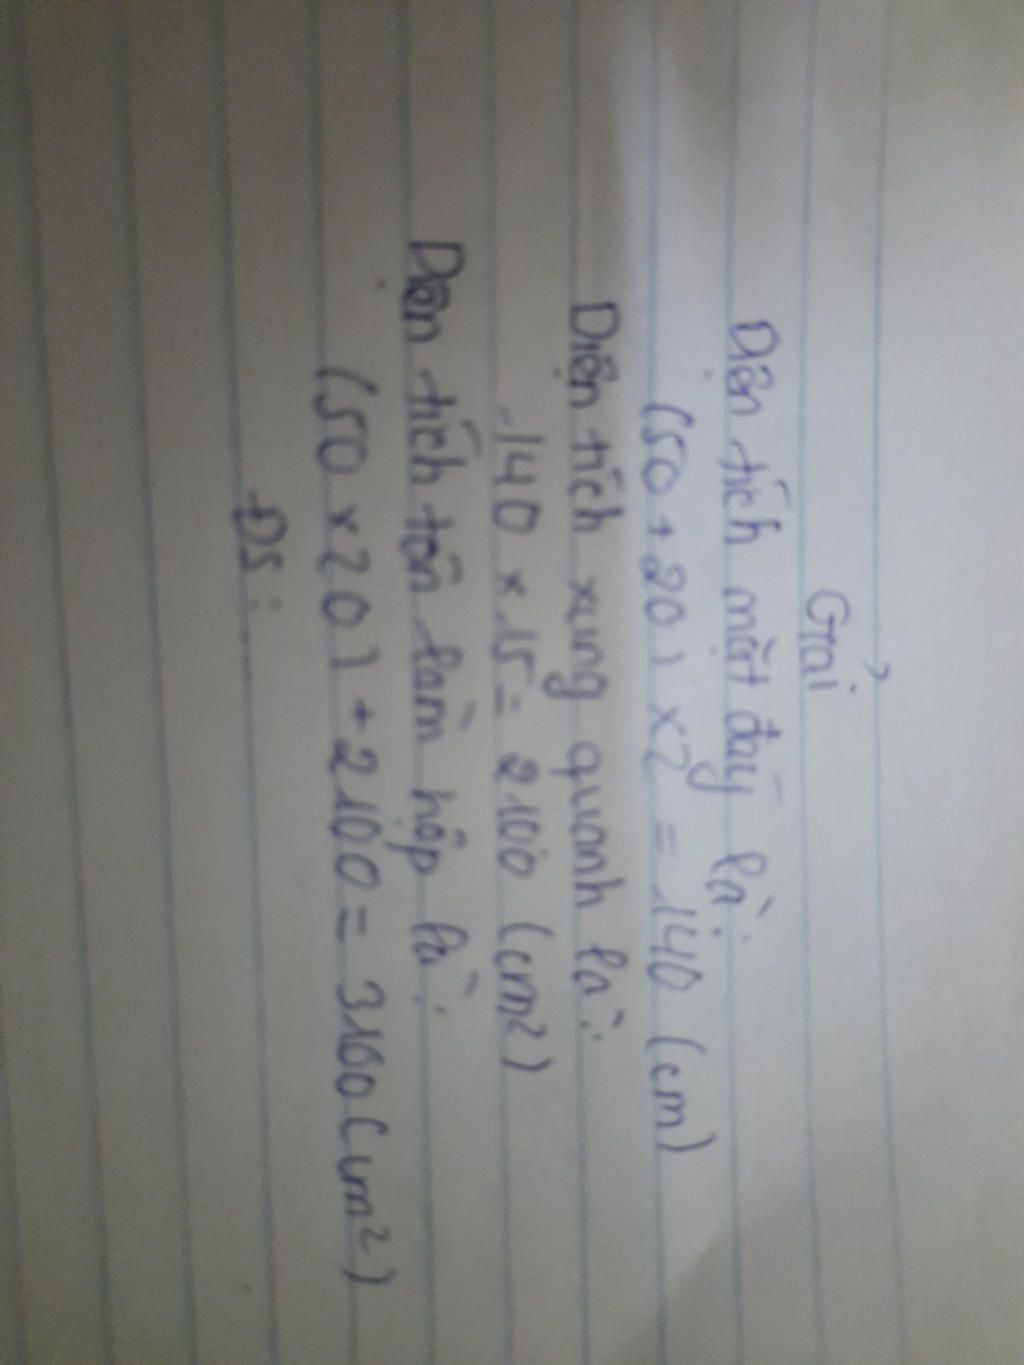 Giải
Diện tích mặt đáy là:
(50 + 20) x 2 = 140 (cm)
Diện tích xung quanh là:
140 x 15 = 2100 (cm²)
Diện tích tôn làm hộp là:
(50 x 20) + 2100 = 3100 (cm²)
ĐS: